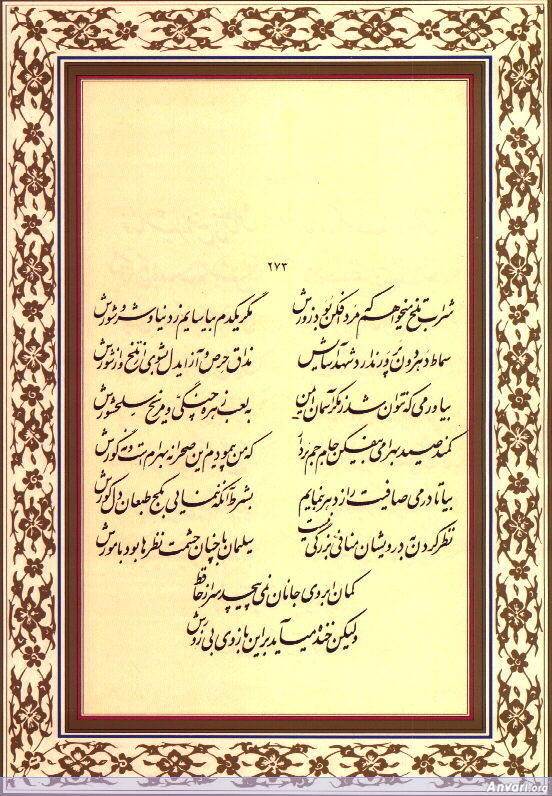 ۲۷۳
شراب تلخ میخواهم که مرد افکن بود زورش مگر یکدم بیاسایم ز دنیا و شر و شورش
سماط دهر دون پرور ندارد شهد آسایش مذاق حرص و آز ای دل بشوی از تلخ و از شورش
بیاور می که نتوان شد ز مکر آسمان ایمن به لعب زهره چنگی و مریخ سلحشورش
کمند صید بهرامی بیفکن جام جم بردار که من پیمودم این صحرا نه بهرام است و نه گورش
بیا تا در می صافیت راز دهر بنمایم بشرط آنکه ننمایی به کج طبعان دل کورش
نظر کردن به درویشان منافی بزرگی نیست سلیمان با چنان حشمت نظرها بود با مورش
کمان ابروی جانان نمی پیچد سر از حافظ
ولیکن خنده میآید بر این بازوی بی زورش
Anvari.org